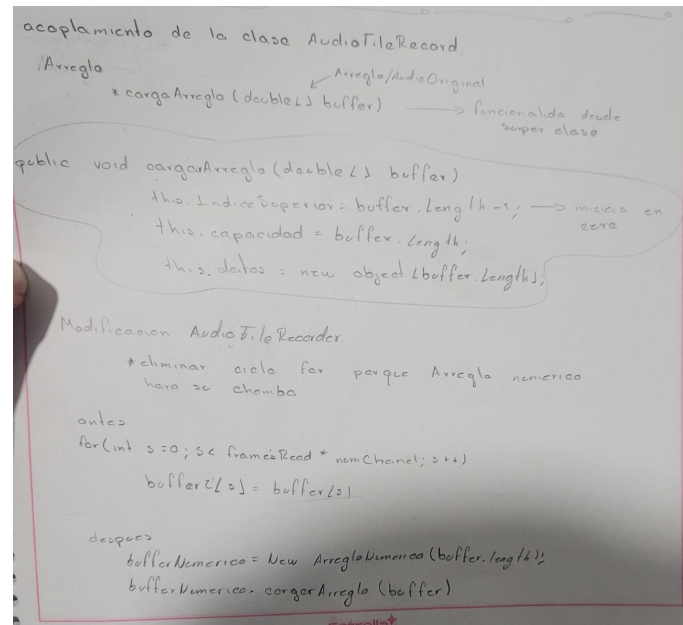 acoplamiento de la clase AudioFileRecord
Arreglo
Arreglo/AudioOriginal
* cargaArreglo (double[] buffer) → funcionalida desde
super clase
public void cargarArreglo(double[] buffer)
this.IndiceSuperior = buffer.length -1; → inicia en
cero
this.capacidad = buffer.length;
this.datos = new object [buffer.length];
Modificacion AudioFileRecorder
* eliminar ciclo for porque Arreglo numerico
hara se chamba
antes
for(int s=0; s< framesRead * numChanel; s++)
buffer2[s] = buffer[s]
despues
bufferNumerico = New ArregloNumerico(buffer.length);
bufferNumerico. cargarArreglo (buffer)